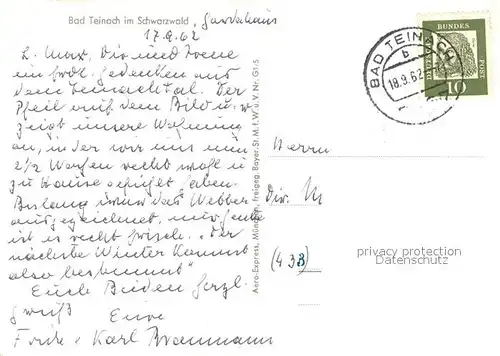 Bad Teinach im Schwarzwald "Gardehaus
17.9.62
L. Max, Dir und Irene
ein frdl. Gedenken aus
dem Teinachtal. Der
Pfeil auf dem Bild u. w.
zeigt unsere Wohnung
an, in der wir uns nun
2 1/2 Wochen recht wohl u.
zu Hause gefühlt haben.
Bislang war das Wetter
ausgezeichnet, nur heute
ist es recht frisch. "Der
nächste Winter kommt
also bestimmt"
Euch Beiden herzl.
Gruß Eure
+ Karl
Aero-Express, München, Freigeg. Bayer. St. M. f. W. u. V. Nr. G1-5
BAD TEINACH
b
18.9.62
DEUTSCHE
BUNDES
POST
10
Herrn
Dir. M
(43B)
privacy protection
Datenschutz